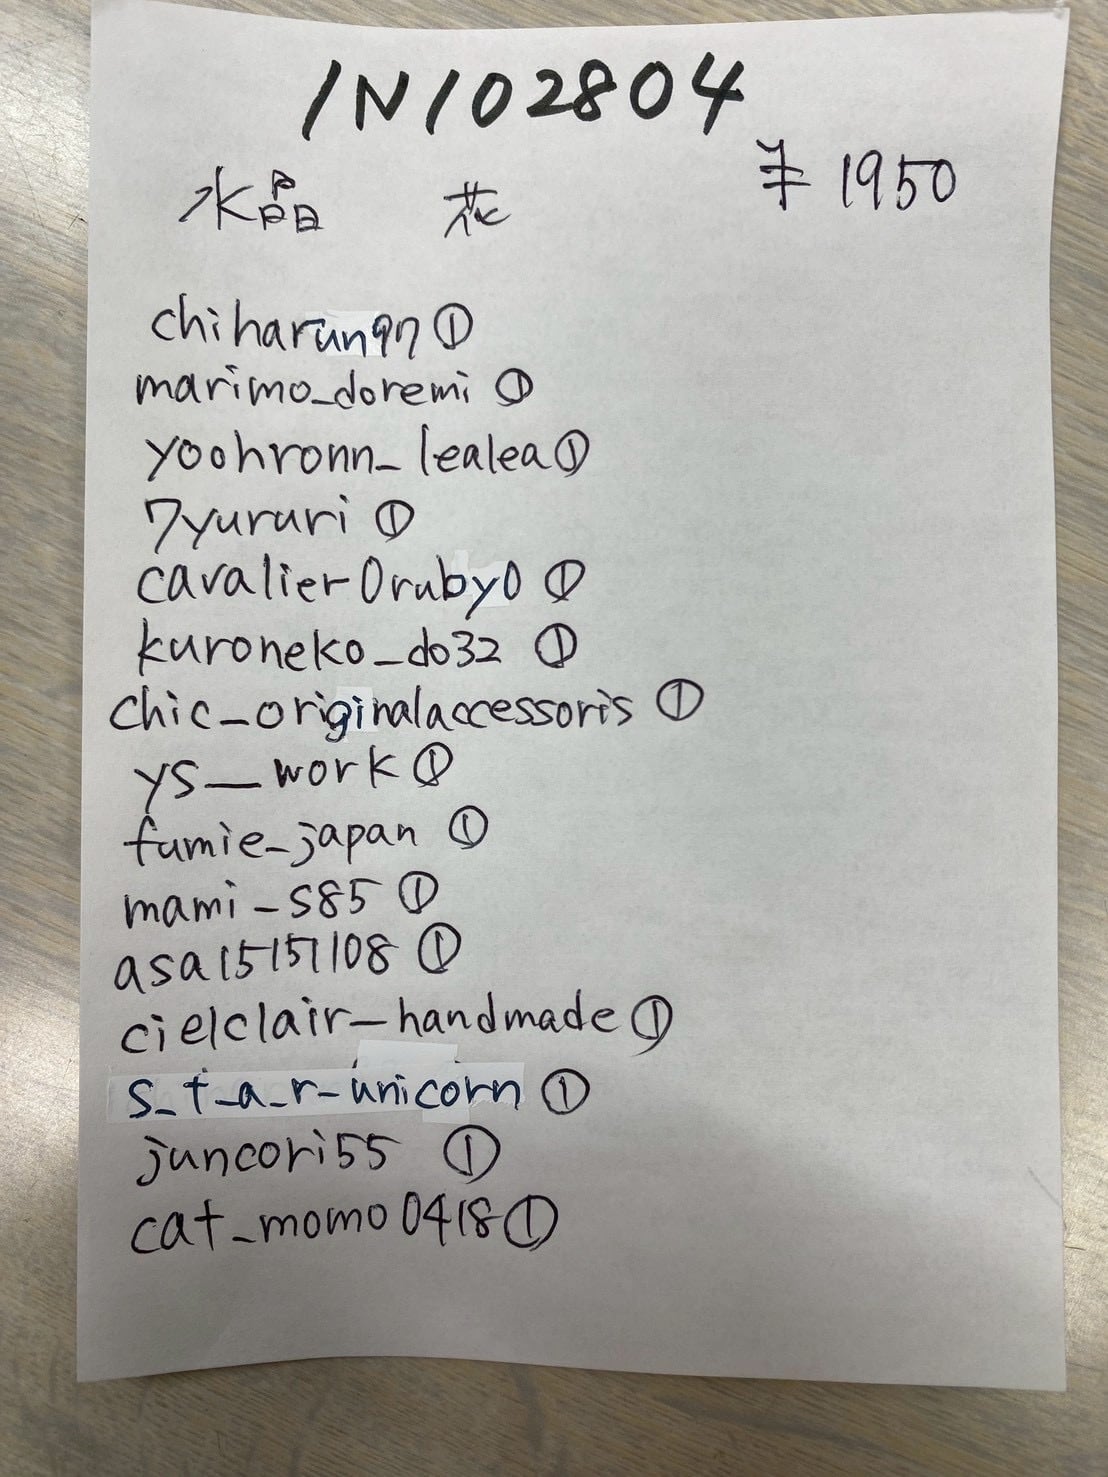 IN102804
水晶 花 ¥1950
chiharun97①
marimo_doremi ①
yoohronn_lealea①
7yururi ①
cavalier0ruby0 ①
kuroneko_do32 ①
chic_originalaccessoris ①
ys__work①
fumie_japan ①
mami_s85 ①
asa15151108 ①
cielclair_handmade①
s_t_a_r_unicorn ①
juncori55 ①
cat_momo0418①